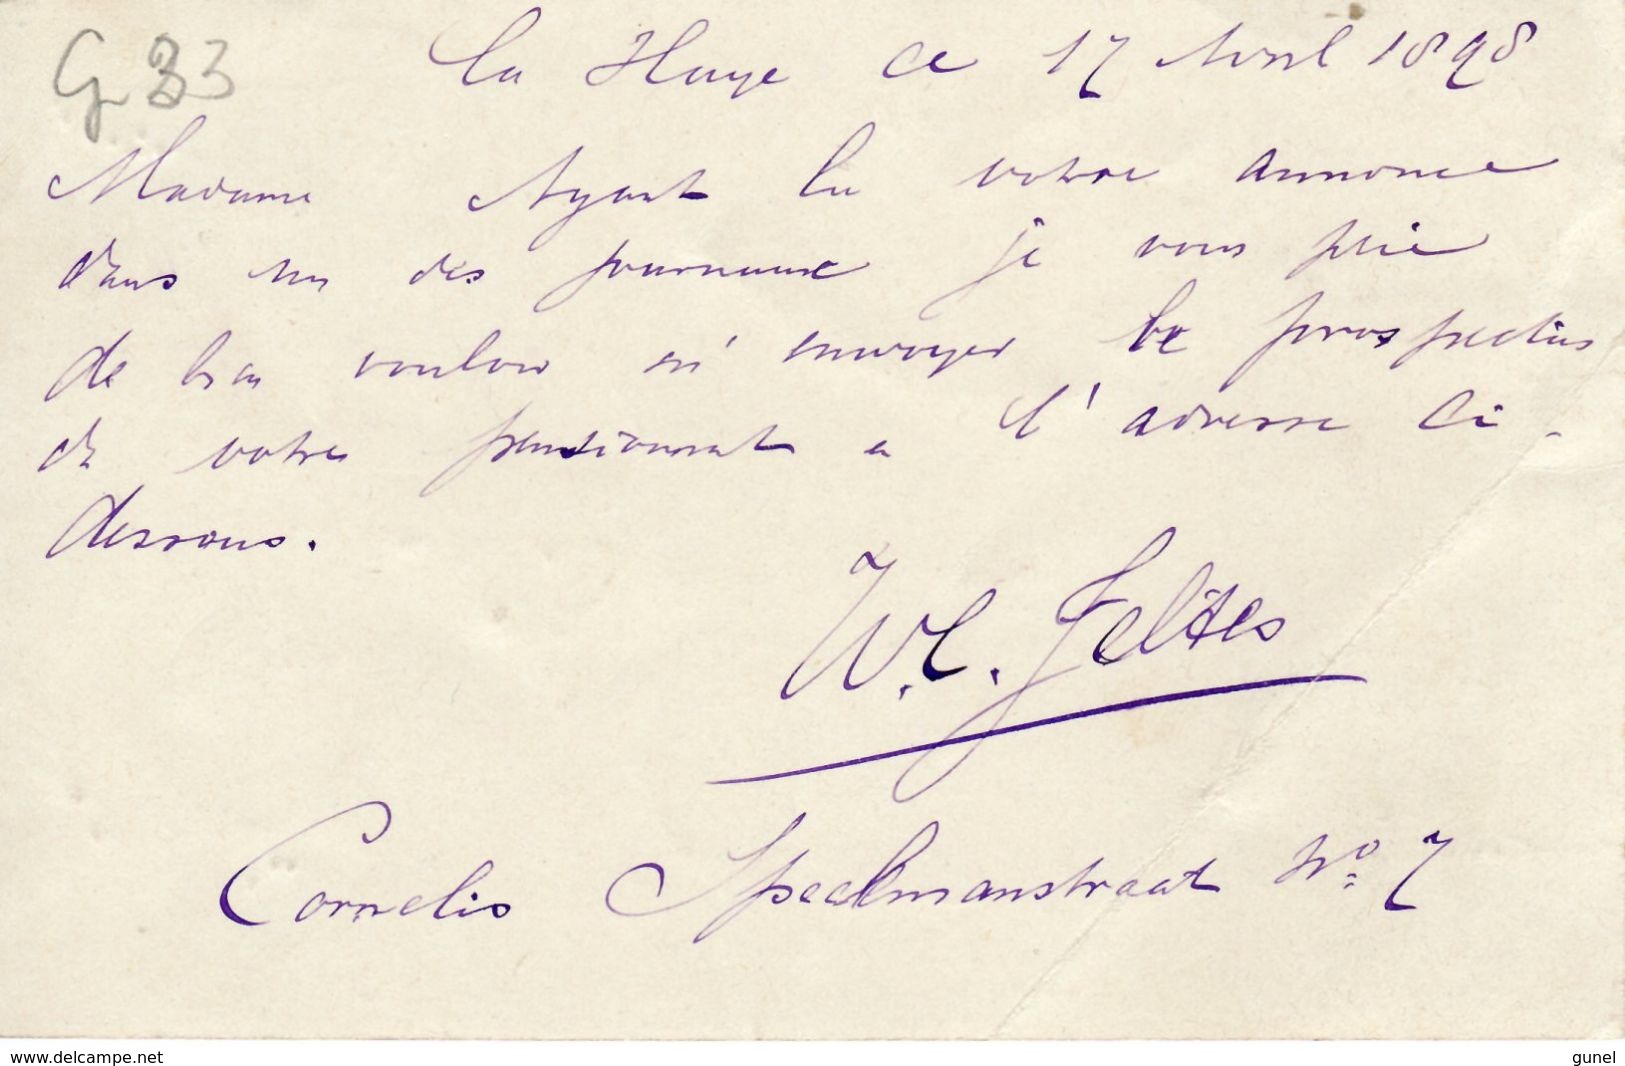 G 33
La Haye ce 17 Avril 1898
Madame Ayant lu votre annonce
dans un des journaux je vous prie
de bien vouloir m'envoyer le prospectus
de votre pensionnat a l'adresse ci-
dessous.
W. C. Jeltes
Cornelis Speelmanstraat No 7
www.delcampe.net
gunel